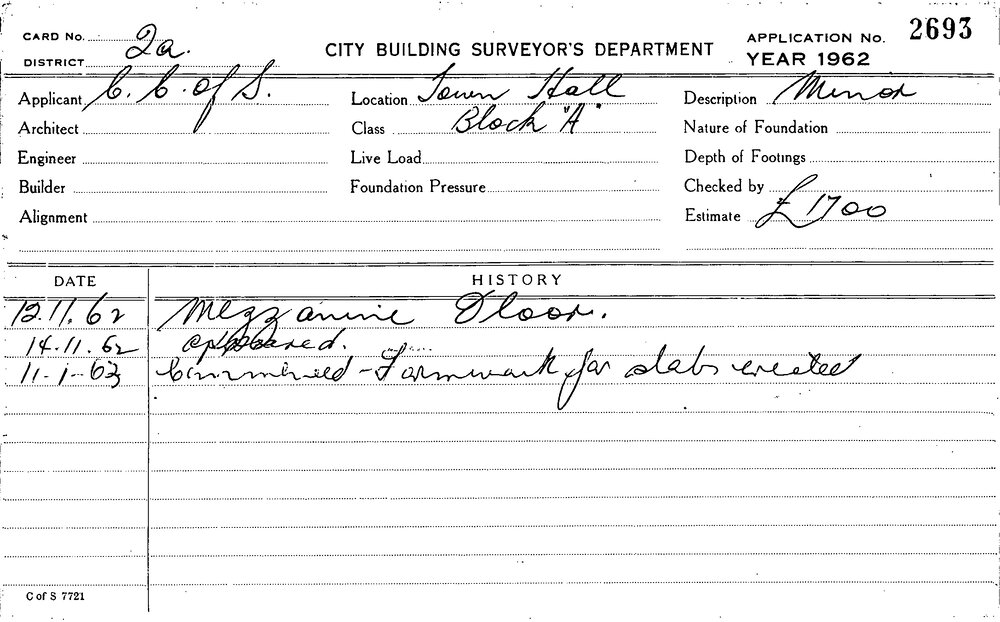 CARD No. 2a. CITY BUILDING SURVEYOR'S DEPARTMENT APPLICATION No. 2693
DISTRICT YEAR 1962
Applicant C. C. of S. Location Town Hall Description Minor
Architect Class Block "A" Nature of Foundation
Engineer Live Load Depth of Footings
Builder Foundation Pressure Checked by
Alignment Estimate £1700
DATE HISTORY
12.11.62 Mezzanine Floor.
14.11.62 approved.
11-1-63 Commenced - Formwork for slabs erected
C of S 7721